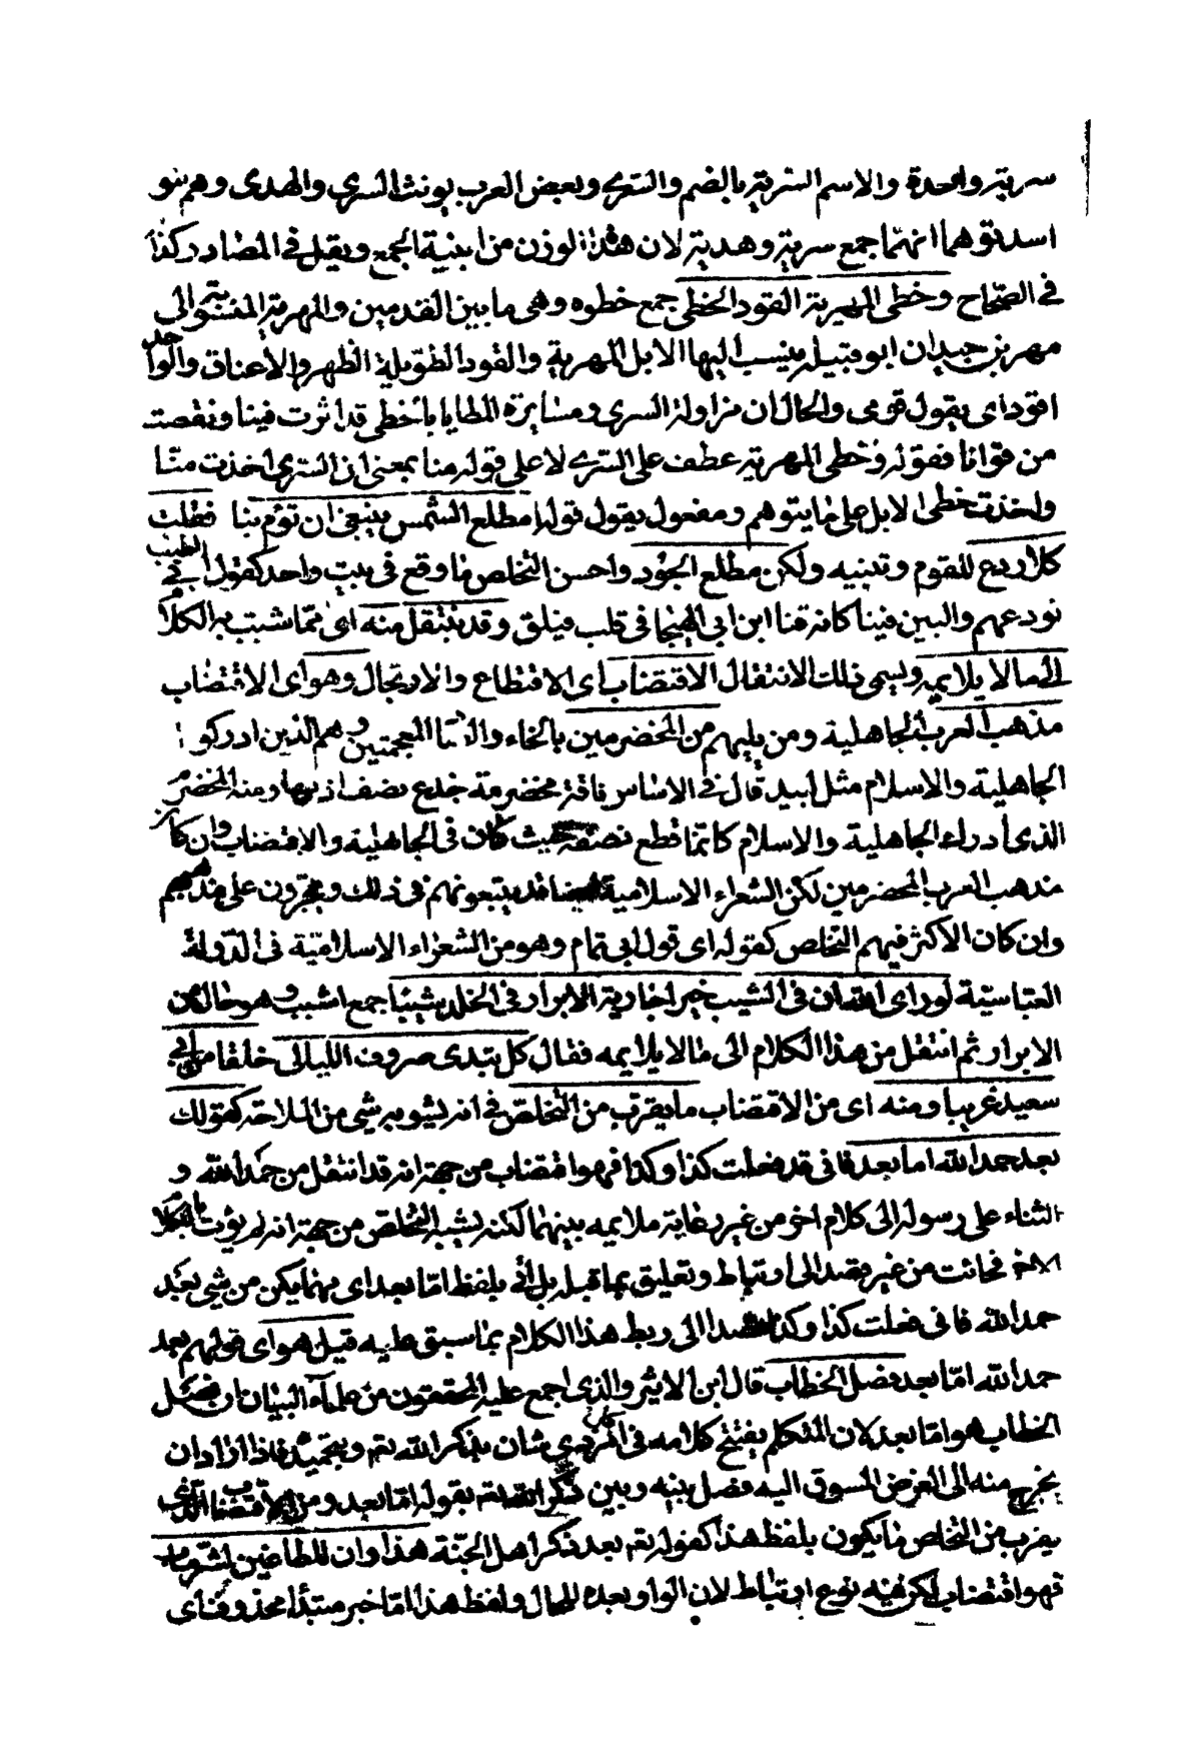 سرية واحدة والاسم السرية بالضم والسرى وبعض العرب يونث السرى والهدى وهم بنو
اسد توهما انهما جمع سرية وهدية لان هذا الوزن من ابنية الجمع ويقل في المصادر كذا
في الصحاح وخطى المهرية القود الخطى جمع خطوه وهى ما بين القدمين والمهرية المنسوبة الى
مهر بن حيدان ابو قبيلة ينسب اليها الابل المهرية والقود الطويلة الظهر والاعناق والواحد
اقود اى يقول قومى والحال ان مزاولة السرى ومسايرة المطايا بالخطى قد اثرت فينا ونقصت
من قوانا فقوله وخطى المهرية عطف على السرى لا على قوله منا بمعنى ان السرى اخذت منا
واخذت خطى الابل على ما يتوهم ومفعول يقول قوله امطلع الشمس ينبغى ان تؤم بنا فقلت
كلا ردع للقوم وتنبيه ولكن مطلع الجود واحسن التخلص ما وقع في بيت واحد كقول ابى الطيب
نودعهم والبين فينا كانه قنا ابن ابى الهيجا في قلب فيلق وقد ينتقل منه اى مما شبب به الكلام
الى ما لا يلايمه ويسمى ذلك الانتقال الاقتضاب اى الاقتطاع والارتجال وهو اى الاقتضاب
مذهب العرب الجاهلية ومن يليهم من المخضرمين بالخاء والضاد المعجمتين وهم الذين ادركوا
الجاهلية والاسلام مثل لبيد قال في الاساس ناقة مخضرمة جدع نصف اذنها ومنه المخضرم
الذى ادرك الجاهلية والاسلام كانما قطع نصفه حيث كان في الجاهلية والاقتضاب وان كان
مذهب العرب المخضرمين لكن الشعراء الاسلامية ايضا قد يتبعونهم في ذلك ويجرون على مذهبهم
وان كان الاكثر فيهم التخلص كقوله اى قول ابى تمام وهو من الشعراء الاسلامية في الدولة
العباسية لو راى الله ان في الشيب خيرا جاورته الابرار في الخلد شيبا جمع اشيب وهو حال من
الابرار ثم انتقل من هذا الكلام الى ما لا يلايمه فقال كل يبدى صروف الليالى خلقا من ابى
سعيد غريبا ومنه اى من الاقتضاب ما يقرب من التخلص في انه يشوبه شى من الملاحة كقولك
بعد حمد الله اما بعد فانى قد فعلت كذا وكذا فهو اقتضاب من جهة انه قد انتقل من حمد الله و
الثناء على رسوله الى كلام اخر من غير رعاية ملايمه بينهما لكنه يشبه التخلص من جهة انه لم يؤت بالكلام
الاخر فجائت من غير قصد الى ارتباط وتعليق بما قبله بل اتى بلفظ اما بعد اى مهما يكن من شى بعد
حمد الله فانى فعلت كذا وكذا قصدا الى ربط هذا الكلام بما سبق عليه قيل هو اى قولهم بعد
حمد الله اما بعد فصل الخطاب قال ابن الاثير والذى اجمع عليه المحققون من علماء البيان ان فصل
الخطاب هو اما بعد لان المتكلم يفتتح كلامه في كل امر ذى شان بذكر الله تع وبتحميده فاذا اراد ان
يخرج منه الى الغرض المسوق اليه فصل بينه وبين ذكر الله تع بقوله اما بعد ومن الاقتضاب الذى
يقرب من التخلص ما يكون بلفظ هذا كقوله تع بعد ذكر اهل الجنة هذا وان للطاغين لشر ماب
فهو اقتضاب لكن فيه نوع ارتباط لان الواو بعده للحال ولفظ هذا اما خبر مبتدا محذوف اى